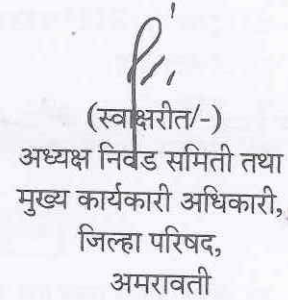 (स्वाक्षरीत/-)
अध्यक्ष निवड समिती तथा
मुख्य कार्यकारी अधिकारी,
जिल्हा परिषद,
अमरावती